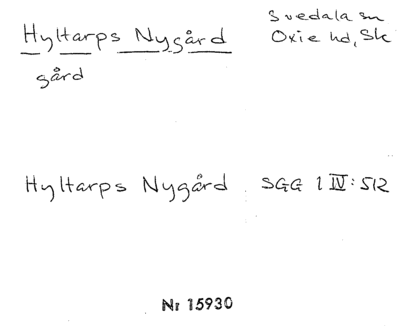 Hyltarps Nygård
Svedala sn
Oxie hd, Sk
gård
Hyltarps Nygård SGG 1 IV: 512
Nr 15930